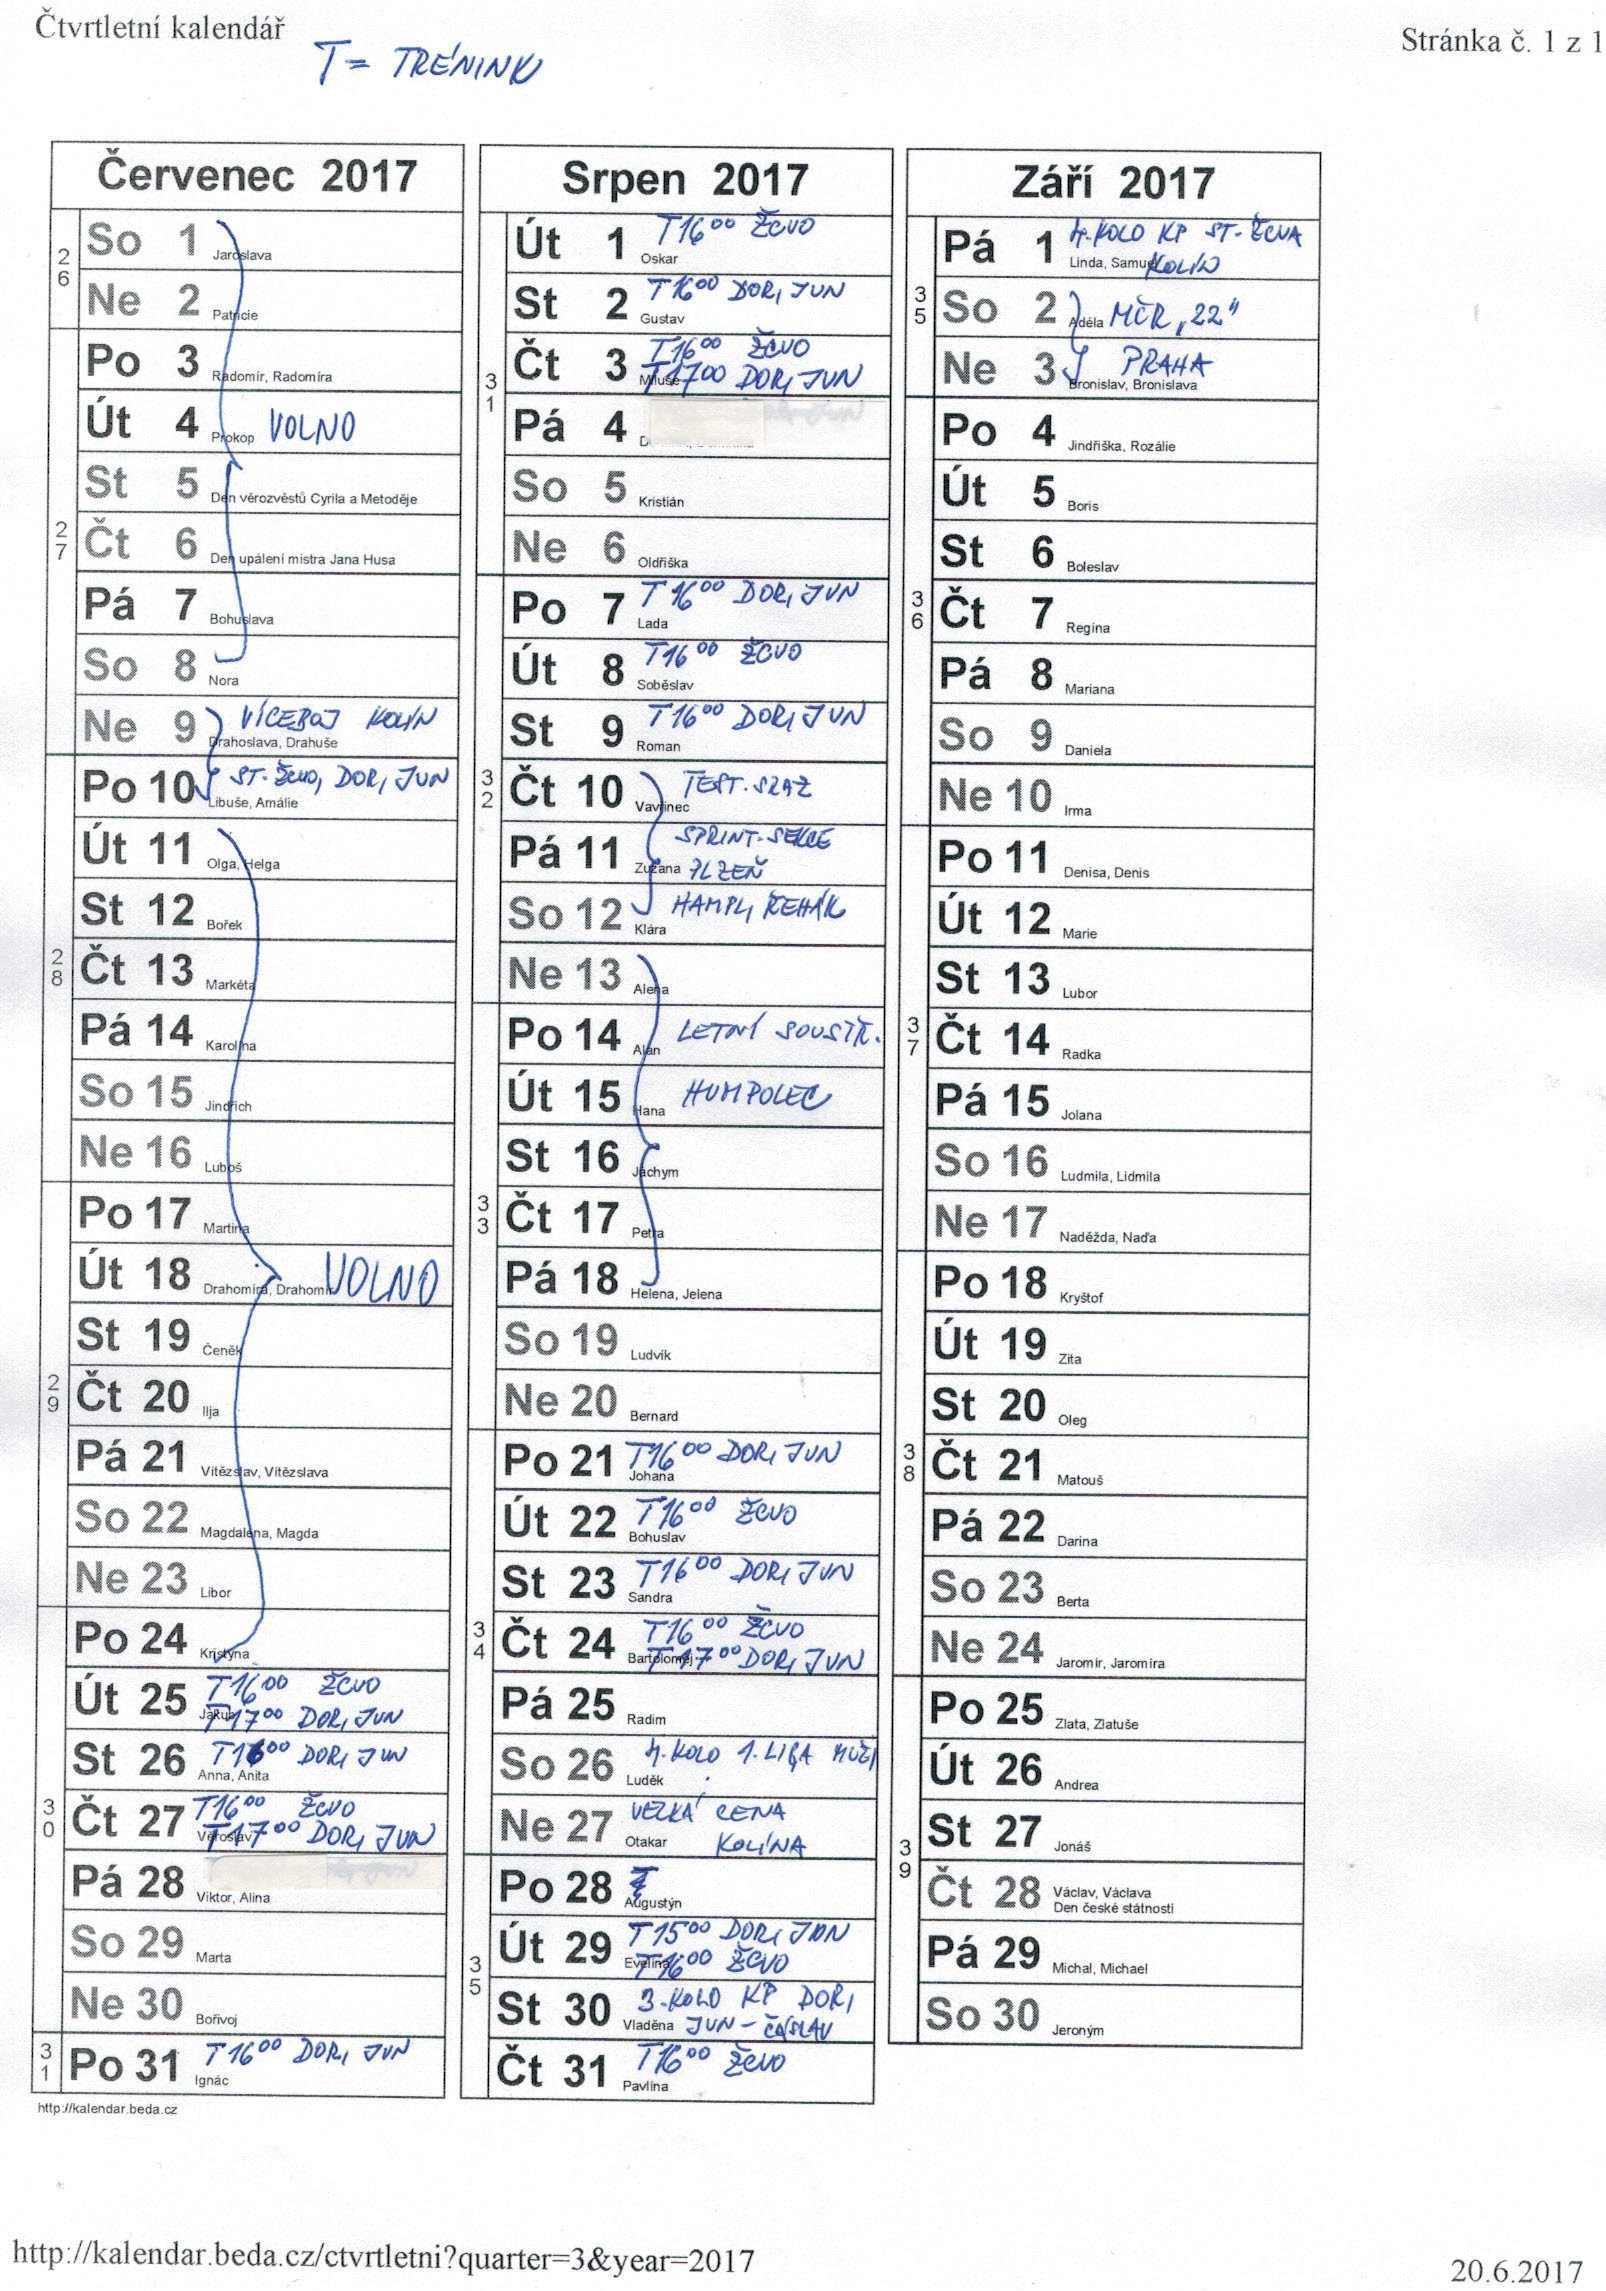 Čtvrtletní kalendář
Stránka č. 1 z 1
T = TRÉNINK
Červenec 2017
26
So 1 Jaroslava
Ne 2 Patricie
27
Po 3 Radomír, Radomíra
Út 4 Prokop VOLNO
St 5 Den věrozvěstů Cyrila a Metoděje
Čt 6 Den upálení mistra Jana Husa
Pá 7 Bohuslava
So 8 Nora
Ne 9 Drahoslava, Drahuše VÍCEBOJ KOLÍN
28
Po 10 Libuše, Amálie ST. ŽCVO, DOR, JUN
Út 11 Olga, Helga
St 12 Bořek
Čt 13 Markéta
Pá 14 Karolína
So 15 Jindřich
Ne 16 Luboš
29
Po 17 Martina
Út 18 Drahomíra, Drahomír VOLNO
St 19 Čeněk
Čt 20 Ilja
Pá 21 Vítězslav, Vítězslava
So 22 Magdaléna, Magda
Ne 23 Libor
30
Po 24 Kristýna
Út 25 Jakub T 16 00 ŽCVO
T 17 00 DOR, JUN
St 26 Anna, Anita T 16 00 DOR, JUN
Čt 27 Věroslav T 16 00 ŽCVO
T 17 00 DOR, JUN
Pá 28 Viktor, Alina
So 29 Marta
Ne 30 Bořivoj
31
Po 31 Ignác T 16 00 DOR, JUN
http://kalendar.beda.cz
Srpen 2017
31
Út 1 Oskar T 16 00 ŽCVO
St 2 Gustav T 16 00 DOR, JUN
Čt 3 Miluše T 16 00 ŽCVO
T 17 00 DOR, JUN
Pá 4
So 5 Kristián
Ne 6 Oldřiška
32
Po 7 Lada T 16 00 DOR, JUN
Út 8 Soběslav T 16 00 ŽCVO
St 9 Roman T 16 00 DOR, JUN
Čt 10 Vavřinec TEST. SRAZ
Pá 11 Zuzana SPRINT. SEKCE
PLZEŇ
So 12 Klára HAMPL, ŘEHÁK
Ne 13 Alena
33
Po 14 Alan LETNÍ SOUSTŘ.
Út 15 Hana HUMPOLEC
St 16 Jáchym
Čt 17 Petra
Pá 18 Helena, Jelena
So 19 Ludvík
Ne 20 Bernard
34
Po 21 Johana T 16 00 DOR, JUN
Út 22 Bohuslav T 16 00 ŽCVO
St 23 Sandra T 16 00 DOR, JUN
Čt 24 Bartoloměj T 16 00 ŽCVO
T 17 00 DOR, JUN
Pá 25 Radim
So 26 Luděk 4. KOLO 1. LIGA MUŽI
Ne 27 Otakar VELKÁ CENA
KOLÍNA
35
Po 28 Augustýn
Út 29 Evelína T 15 00 DOR, JUN
T 16 00 ŽCVO
St 30 Vladěna 3. KOLO KP DOR,
JUN - ČÁSLAV
Čt 31 Pavlína T 16 00 ŽCVO
Září 2017
35
Pá 1 Linda, Samuel 4. KOLO KP ST. ŽCVA
KOLÍN
So 2 Adéla MČR "22"
Ne 3 Bronislav, Bronislava PRAHA
36
Po 4 Jindřiška, Rozálie
Út 5 Boris
St 6 Boleslav
Čt 7 Regina
Pá 8 Mariana
So 9 Daniela
Ne 10 Irma
37
Po 11 Denisa, Denis
Út 12 Marie
St 13 Lubor
Čt 14 Radka
Pá 15 Jolana
So 16 Ludmila, Lidmila
Ne 17 Naděžda, Naďa
38
Po 18 Kryštof
Út 19 Zita
St 20 Oleg
Čt 21 Matouš
Pá 22 Darina
So 23 Berta
Ne 24 Jaromír, Jaromíra
39
Po 25 Zlata, Zlatuše
Út 26 Andrea
St 27 Jonáš
Čt 28 Václav, Václava
Den české státnosti
Pá 29 Michal, Michael
So 30 Jeroným
http://kalendar.beda.cz/ctvrtletni?quarter=3&year=2017
20.6.2017